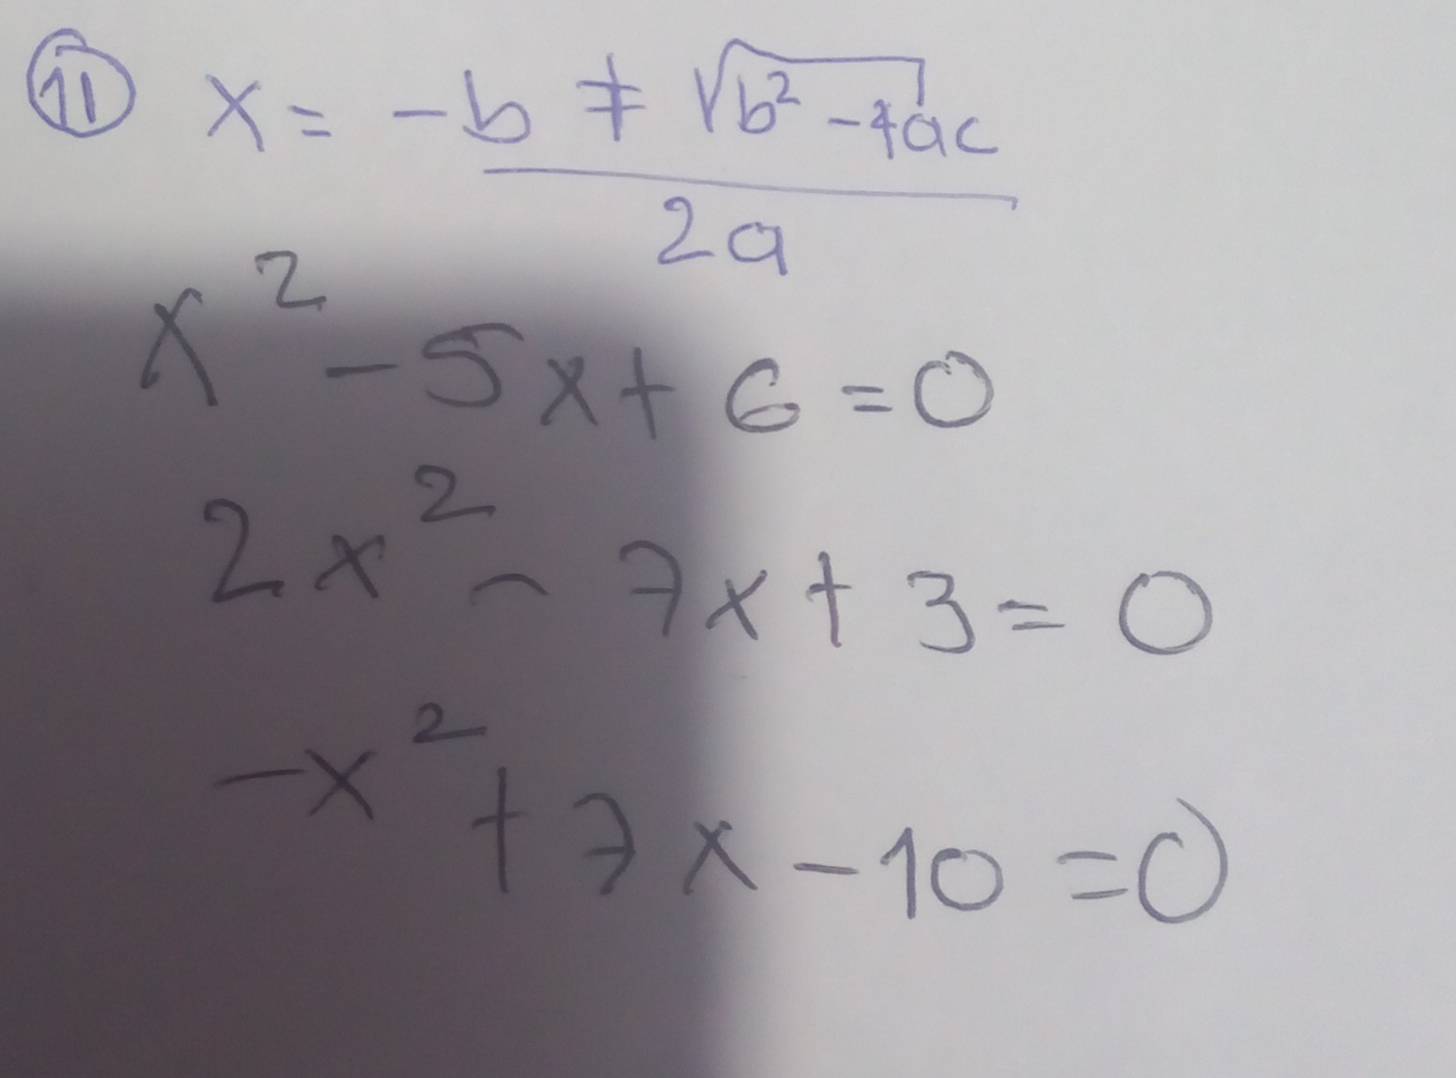 11 x = -b ∓ √b² -4ac
2a
x² - 5x + 6 = 0
2x² - 7x + 3 = 0
-x² + 7x - 10 = 0